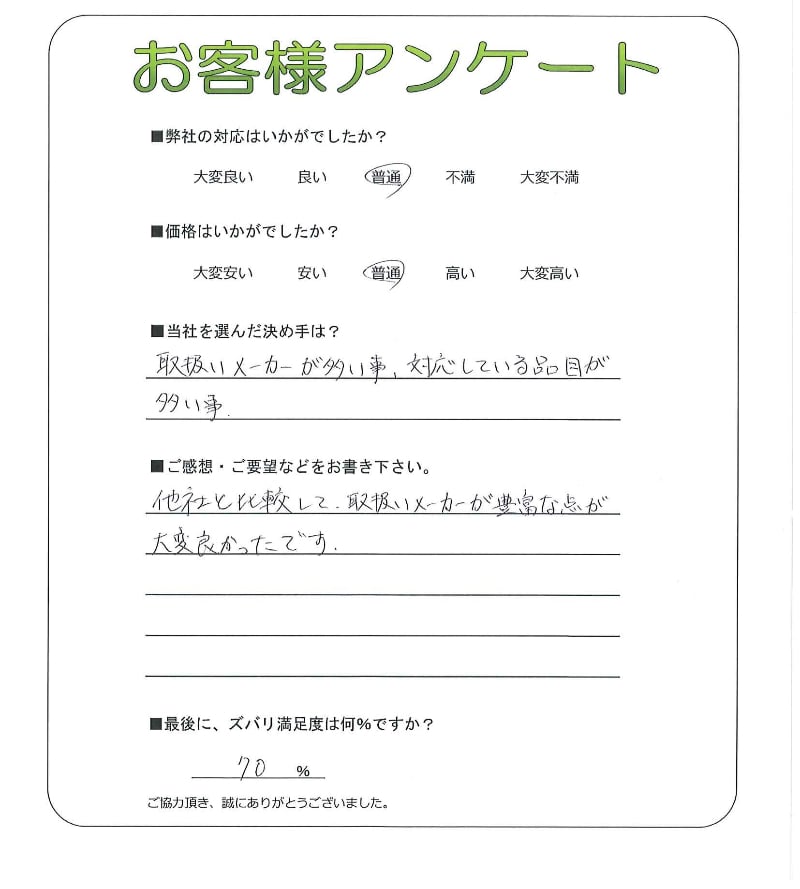 お客様アンケート
■弊社の対応はいかがでしたか？
大変良い 良い 普通 不満 大変不満
■価格はいかがでしたか？
大変安い 安い 普通 高い 大変高い
■当社を選んだ決め手は？
取扱いメーカーが多い事、対応している品目が
多い事.
■ご感想・ご要望などをお書き下さい。
他社と比較して、取扱いメーカーが豊富な点が
大変良かったです.
■最後に、ズバリ満足度は何％ですか？
70 %
ご協力頂き、誠にありがとうございました。